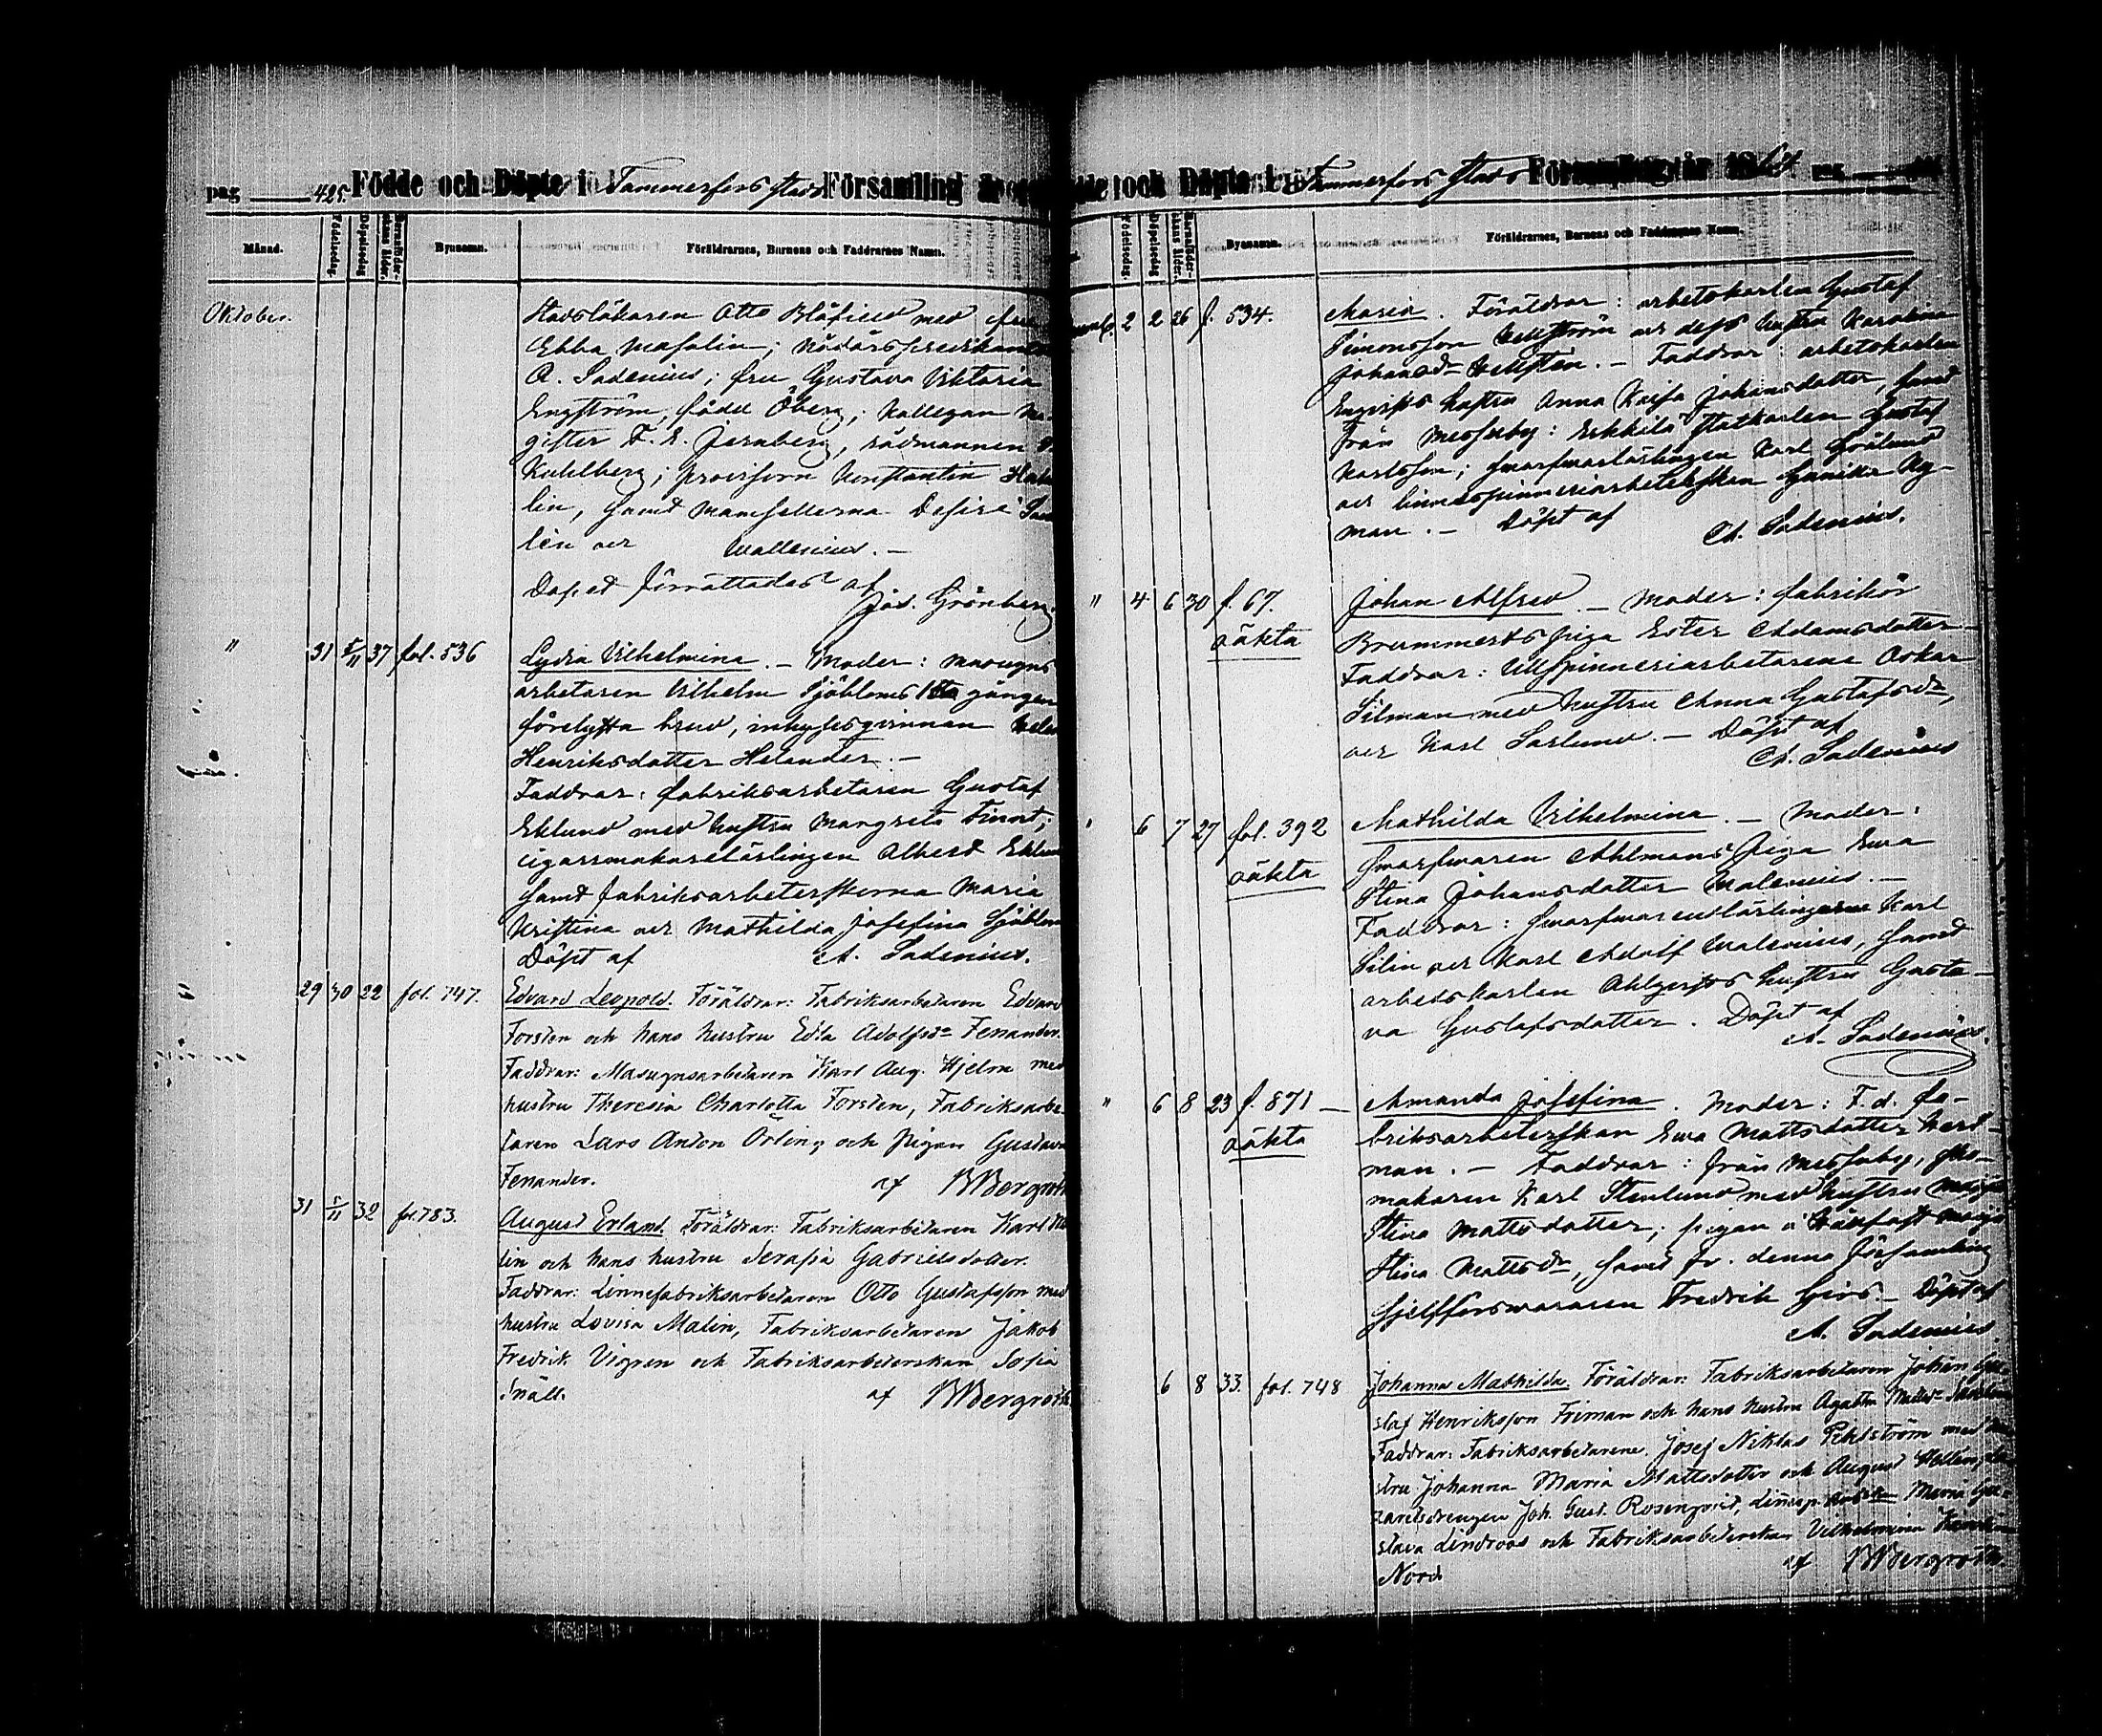 pag 425. Födde och Döpte i Tammerfors stads Församling år
Månad. Födelsedag. Döpelsedag. Bynamn. Föräldrarnes, Barnens och Faddrarnes Namn.
Oktober. Stadsläkaren Otto Blåfield med fru
Ebba Masalin; nådårspredikanten
A. Sadenius; fru Gustava Viktoria
Engström, född Öberg; kollegan ma-
gister F. E. Jernberg, rådmannen
Kuhlberg; provisorn Konstantin
lin, samt mamsellerna Desiré
lén och Wallenius. —
Dopet förrättades af
Jos. Grönberg.
" 31 5/11 37 fol. 536 Lydia Vilhelmina. — Moder: masugns
arbetaren Vilhelm Sjöbloms 1sta gången
förelysta brud, inhysesqvinnan
Henriksdotter Helander. —
Faddrar: fabriksarbetaren Gustaf
Eklund med hustru Margreta Finnt;
cigarrmakarelärlingen Albert Eklun
samt fabriksarbeterskorna Maria
Kristina och Mathilda Josefina Sjöblom
Döpt af A. Sadenius.
29 30 22 fol. 747. Edvard Leopold. Föräldrar: Fabriksarbetaren Edvard
Forsten och hans hustru Edla Adolfsdr Fenander.
Faddrar: Masugnsarbetaren Karl Aug. Hjelm med
hustru Theresia Charlotta Forsten, Fabriksarbe-
taren Lars Anton Örling och Pigan Gustava
Fenander. af Bergroth
31 1/11 32 fol. 783. August Erland. Föräldrar: Fabriksarbetaren Karl
lin och hans hustru Serafia Gabrielsdotter.
Faddrar: Linnefabriksarbetaren Otto Gustafsson med
hustru Lovisa Malin, Fabriksarbetaren Jakob
Fredrik Vigren och Fabriksarbeterskan Sofia
Snäll. af Bergroth
Födde och Döpte i Tammerfors stads Församling år 1864 pag
Födelsedag. Döpelsedag. Bynamn. Föräldrarnes, Barnens och Faddrarnes Namn.
2 2 26 f. 534. Maria. Föräldrar: arbetskarlen Gustaf
Simonsson Hellström och dess hustru Karolina
Johansdr Hellstén. — Faddrar: arbetskarlen
hustru Anna Kajsa Johansdotter, samt
från Messuby: Erkkilä statkarlen Gustaf
Karlsson; svarfvarlärlingen Karl Grölund
och linnespinneriarbeterskan Gunilla Ny-
man. — Döpt af A. Sadenius.
" 4 6 30 f. 67. Johan Alfred. — Moder: fabrikör
oäkta Brummerts piga Ester Adamsdotter
Faddrar: Ullspinneriarbetarene Oskar
Silman med hustru Anna Gustafsdr,
och Karl Saslund. — Döpt af
A. Sadenius
" 6 7 27 fol. 392 Mathilda Vilhelmina. — Moder:
oäkta svarfvaren Ahlmans piga Eva
Stina Johansdotter Walenius. —
Faddrar: svarfvarelärlingarne Karl
Silin och Karl Adolf Walenius, samt
arbetskarlen Ahlqvists hustru Gusta-
va Gustafsdotter. Döpt af
A. Sadenius.
" 6 8 23 f. 871 — Amanda Josefina. Moder: F.d. fa-
oäkta briksarbeterskan Eva Mattsdotter Hed-
man. — Faddrar: från Messuby, sko-
makaren Karl Stenlund med hustru Maja
Stina Mattsdotter; pigan i Maja
Stina Mattsdr, samt fr. denna församling
sjelfförsvararen Fredrik — Döpt af
A. Sadenius.
6 8 33. fol. 748 Johanna Mathilda. Föräldrar: Fabriksarbetaren Johan Gu-
staf Henriksson Friman och hans hustru Agatha Mattsdr
Faddrar: Fabriksarbetarene Josef Niklas Pihlström med hu-
stru Johanna Maria Mattsdotter och August Hellén,
Joh. Gust. Rosenqvist, Linnesp. arb. Maria Gu-
stava Lindroos och Fabriksarbeterskan Vilhelmina Karolina
Nord. af Bergroth